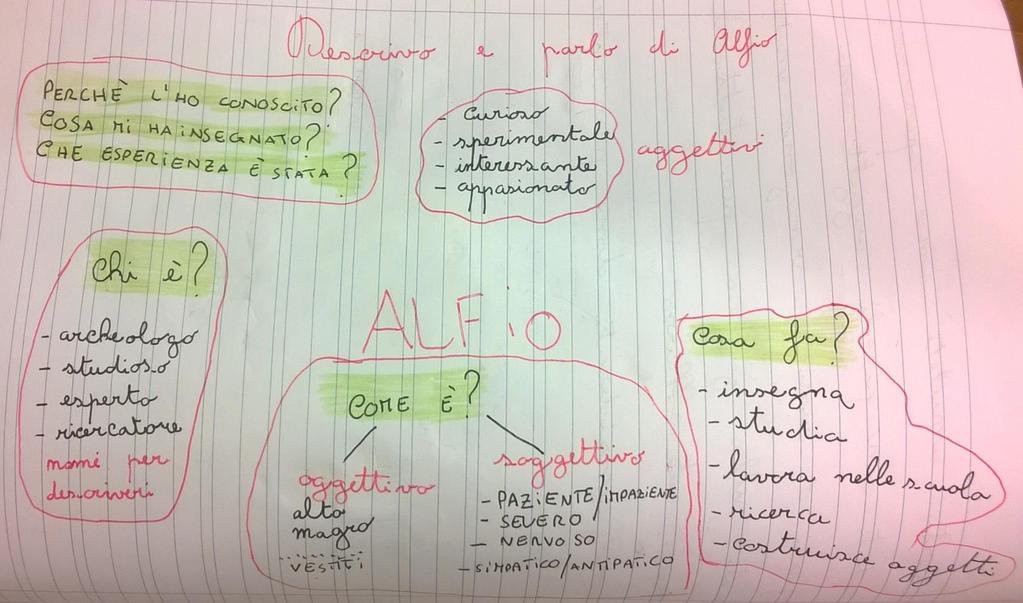 Descrivo e parlo di Alfio
PERCHÈ L'HO CONOSCITO?
COSA MI HA INSEGNATO?
CHE ESPERIENZA È STATA?
- curioso
- sperimentale
- interessante
- appasionato
aggettivi
Chi è?
- archeologo
- studioso
- esperto
- ricercatore
nomi per
descriveri
ALFiO
COME È?
oggettivo
alto
magro
VESTITI
soggettivo
- PAZIENTE/IMPAZIENTE
- SEVERO
- NERVOSO
- SIMPATICO/ANTIPATICO
Cosa fa?
- insegna
- studia
- lavora nelle scuola
- ricerca
- costruisce oggetti